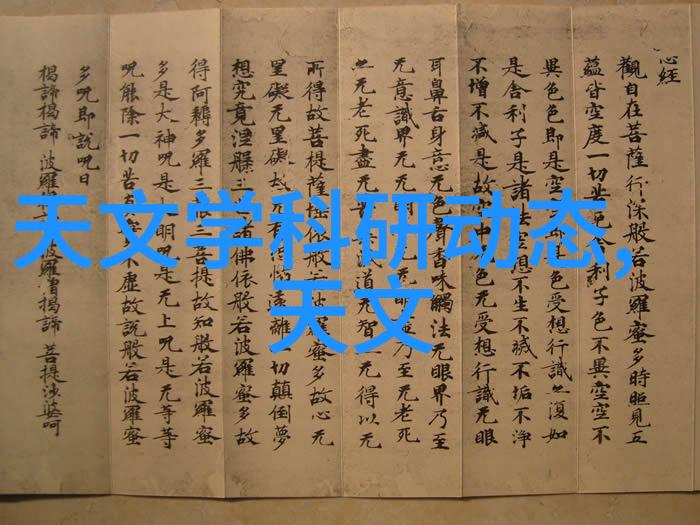 心经
觀自在菩薩行深般若波羅蜜多時照見五
蘊皆空度一切苦舍利子色不異空空不
異色色即是空色受想行識亦復如
是舍利子是諸法空想不生不滅不垢不淨
不增不減是故中色无受想行識无眼
耳鼻舌身意无色聲香味觸法无眼界乃至
无意識界无无明乃至无老死
亦无老死盡无道无智无得以无
所得故菩提薩埵依般若波羅蜜多故心无
罣礙无罣礙故有怖遠離一切顛倒夢
想究竟涅槃三諸佛依般若波羅蜜多故
得阿耨多羅三藐三菩提故知般若波羅蜜
多是大神呪是明呪是无上呪是无等等
呪能除一切苦真不虛故說般若波羅蜜
多呪即說呪曰
揭諦揭諦 波羅波羅僧揭諦 菩提沙婆呵
天文学科研动态,
天文